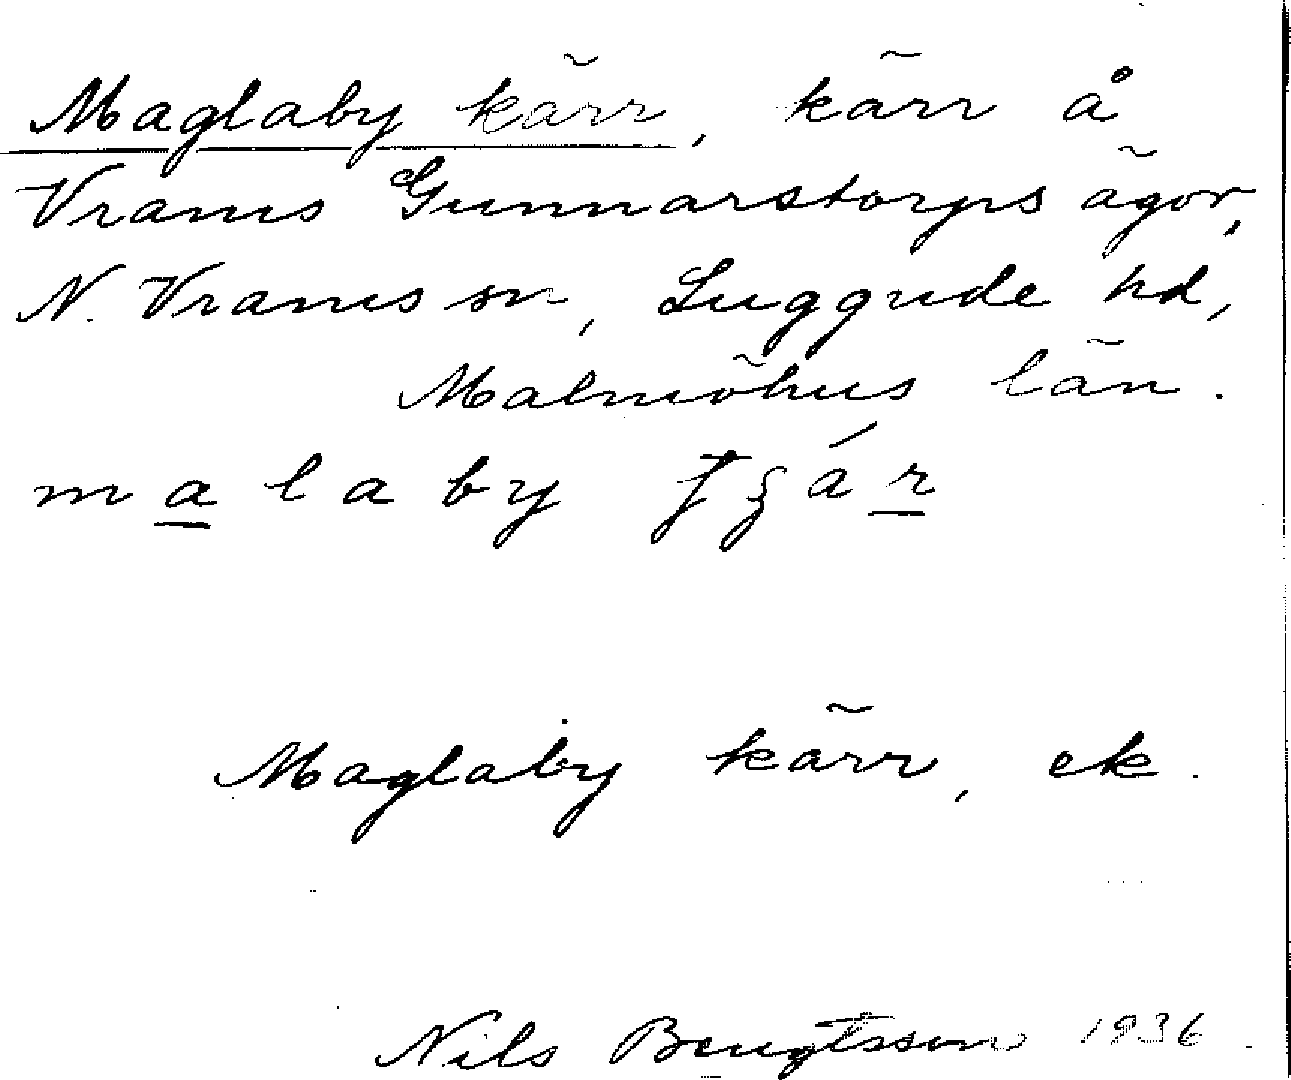 Maglaby kärr, kärr å
Vrams Gunnarstorps ägor,
N. Vrams sn, Luggude hd,
Malmöhus län.
malaby
Maglaby kärr, ek.
Nils Bengtsson 1936